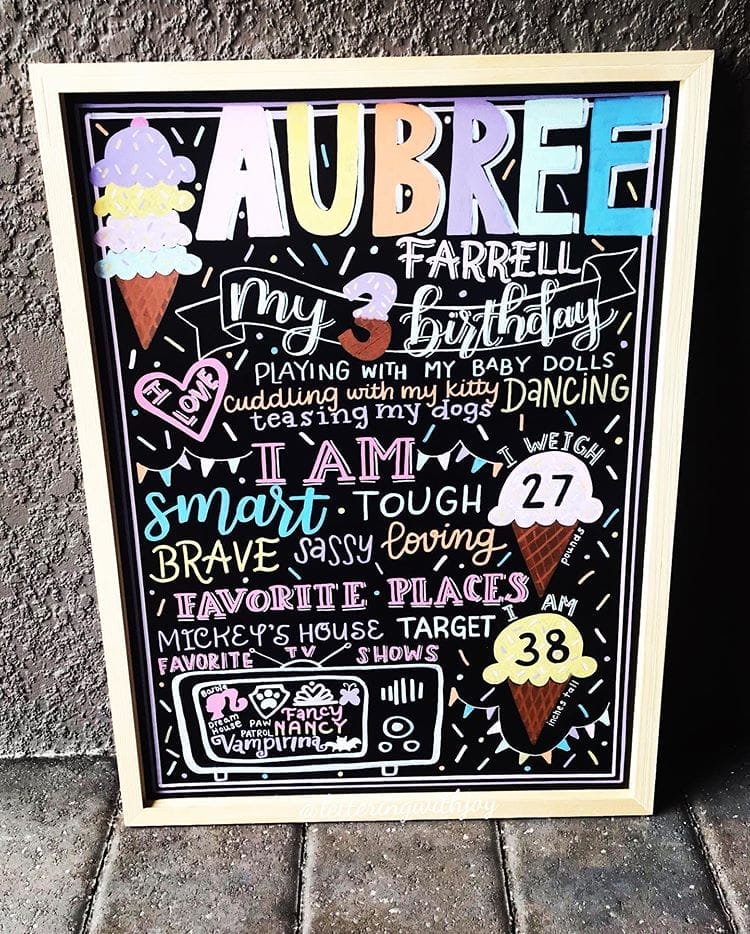 AUBREE
FARRELL
my 3 birthday
I LOVE
PLAYING WITH MY BABY DOLLS
cuddling with my kitty DANCING
teasing my dogs
I AM
smart · TOUGH
BRAVE sassy loving
I WEIGH
27
pounds
FAVORITE · PLACES
MICKEY'S HOUSE TARGET
I AM
38
inches tall
FAVORITE TV SHOWS
Barbie
Dream
House
PAW
PATROL
Fancy
NANCY
Vampirina
@letteringwithjoy